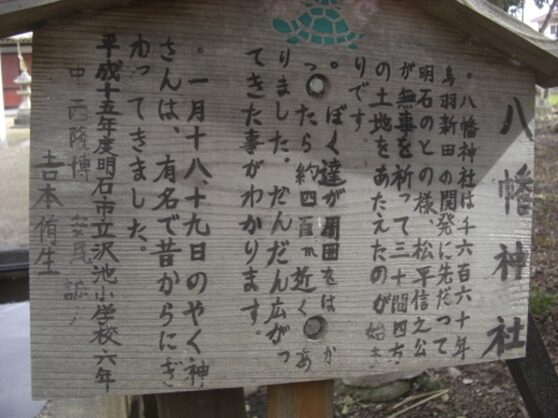 八幡神社
。八幡神社は千六百六十年
鳥羽新田の開発に先だって
明石のとの様、松平信之公
が無事を祈って三十間四方
の土地をあたえたのが始ま
りです
。ぼく達が周囲をはか
ったら約四百m近くあ
りました。だんだん広がっ
てきた事がわかります。
。一月十八、十九日のやく神
さんは、有名で昔からにぎ
わってきました。
平成十五年度明石市立沢池小学校六年
中西隆博
吉本侑生